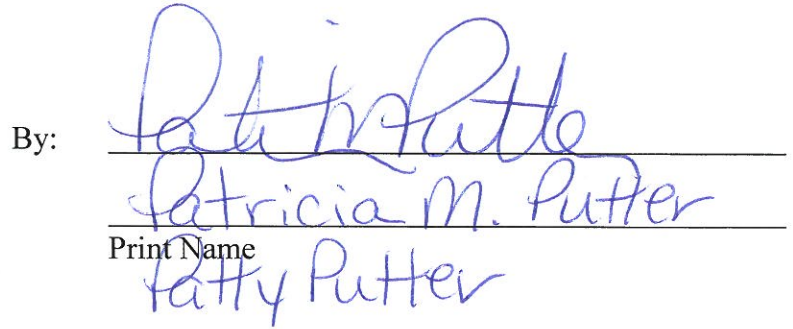 By: Pati M Putter
Patricia M. Putter
Print Name
Patty Putter